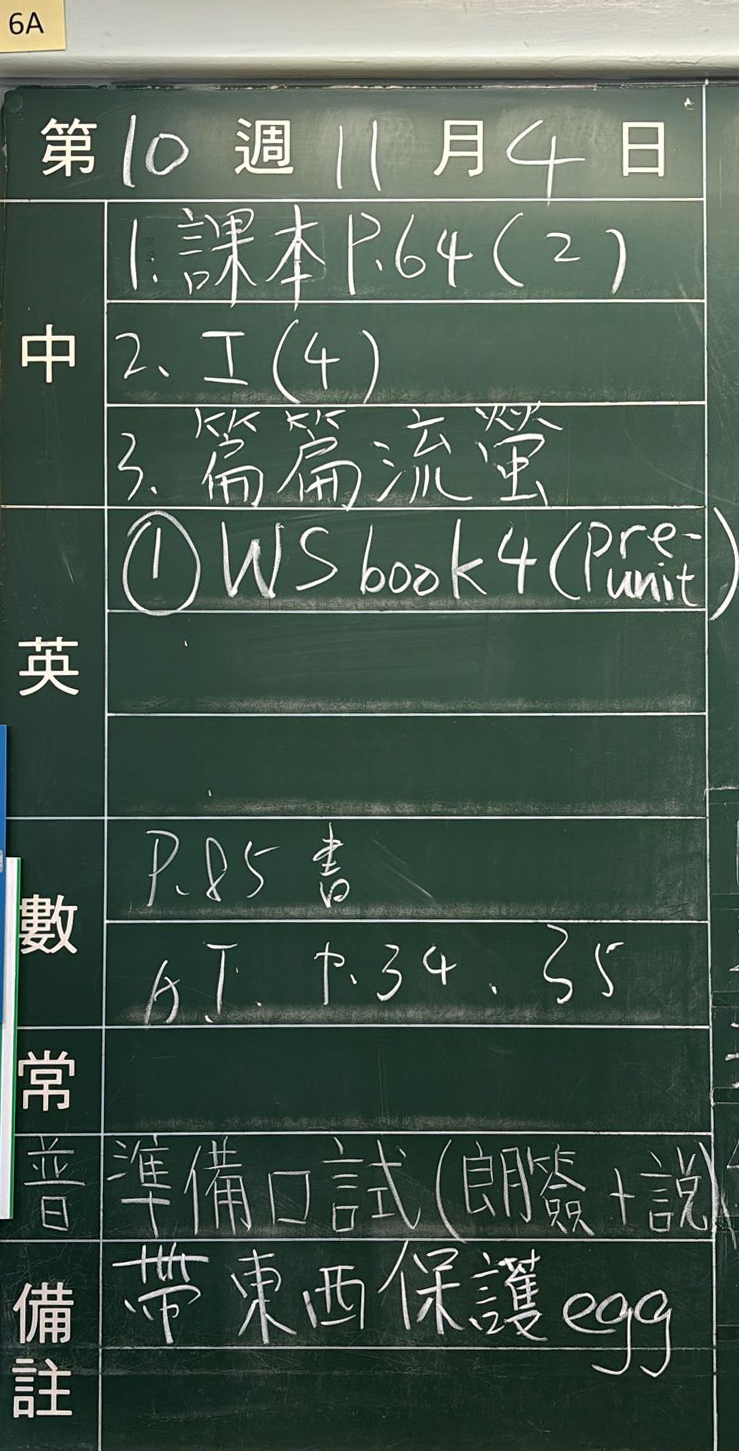 6A
第10週11月4日
中
1.課本P.64(2)
2、工(4)
3.篇篇流螢
英
①WS book 4 (pre-unit)
數
P.85書
A.T. P.34、35
常
普
準備口試(朗+說)
備註
帶東西保護egg